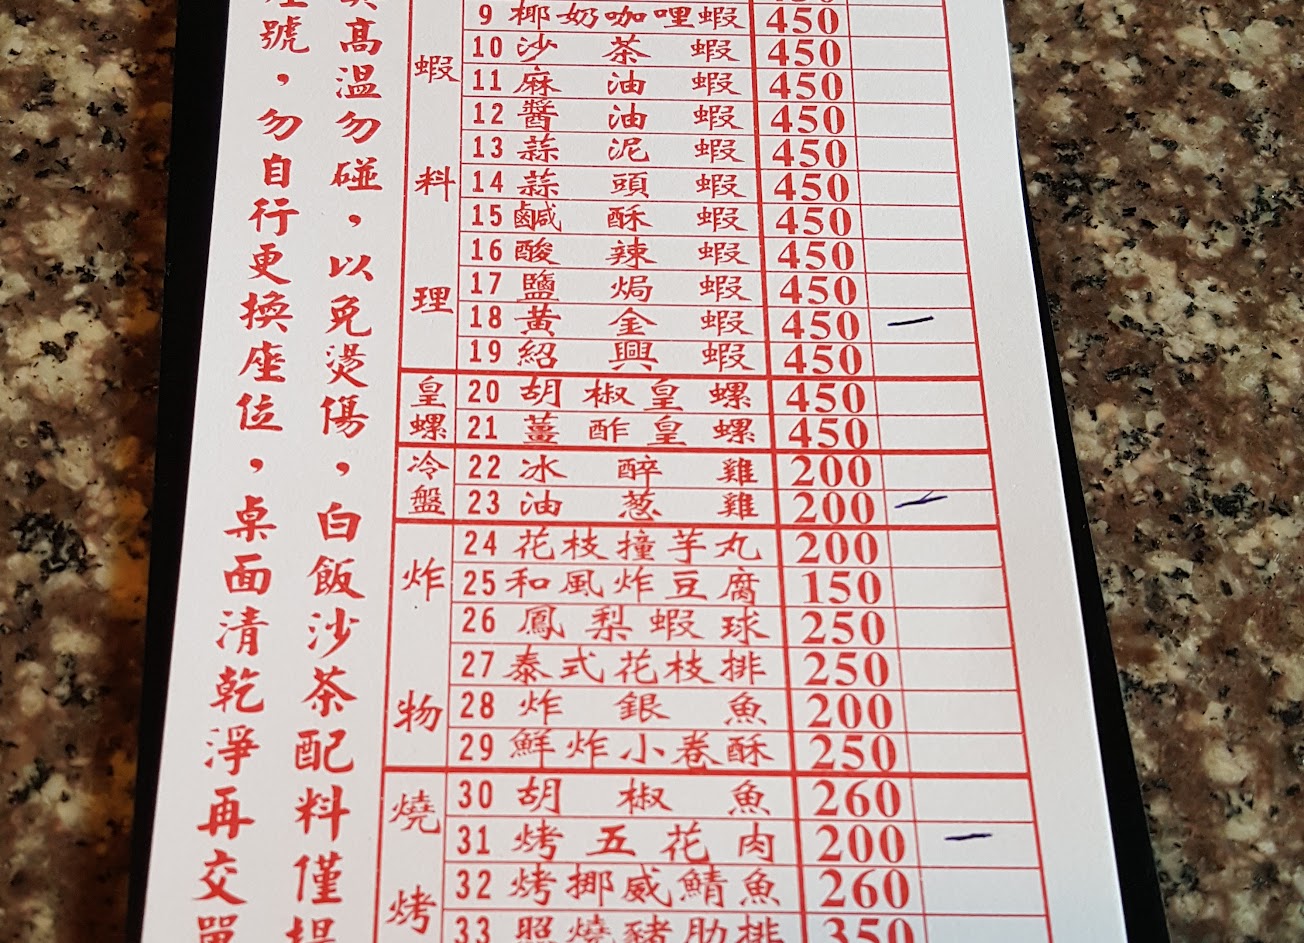 高溫勿碰，以免燙傷，白飯沙茶配料僅提
號，勿自行更換座位，桌面清乾淨再交單
蝦料理
9 椰奶咖哩蝦 450
10 沙茶蝦 450
11 麻油蝦 450
12 醬油蝦 450
13 蒜泥蝦 450
14 蒜頭蝦 450
15 鹹酥蝦 450
16 酸辣蝦 450
17 鹽焗蝦 450
18 黃金蝦 450
19 紹興蝦 450
皇螺
20 胡椒皇螺 450
21 薑酢皇螺 450
冷盤
22 冰醉雞 200
23 油葱雞 200
炸物
24 花枝撞芋丸 200
25 和風炸豆腐 150
26 鳳梨蝦球 250
27 泰式花枝排 250
28 炸銀魚 200
29 鮮炸小卷酥 250
燒烤
30 胡椒魚 260
31 烤五花肉 200
32 烤挪威鯖魚 260
33 照燒豬肋排 350